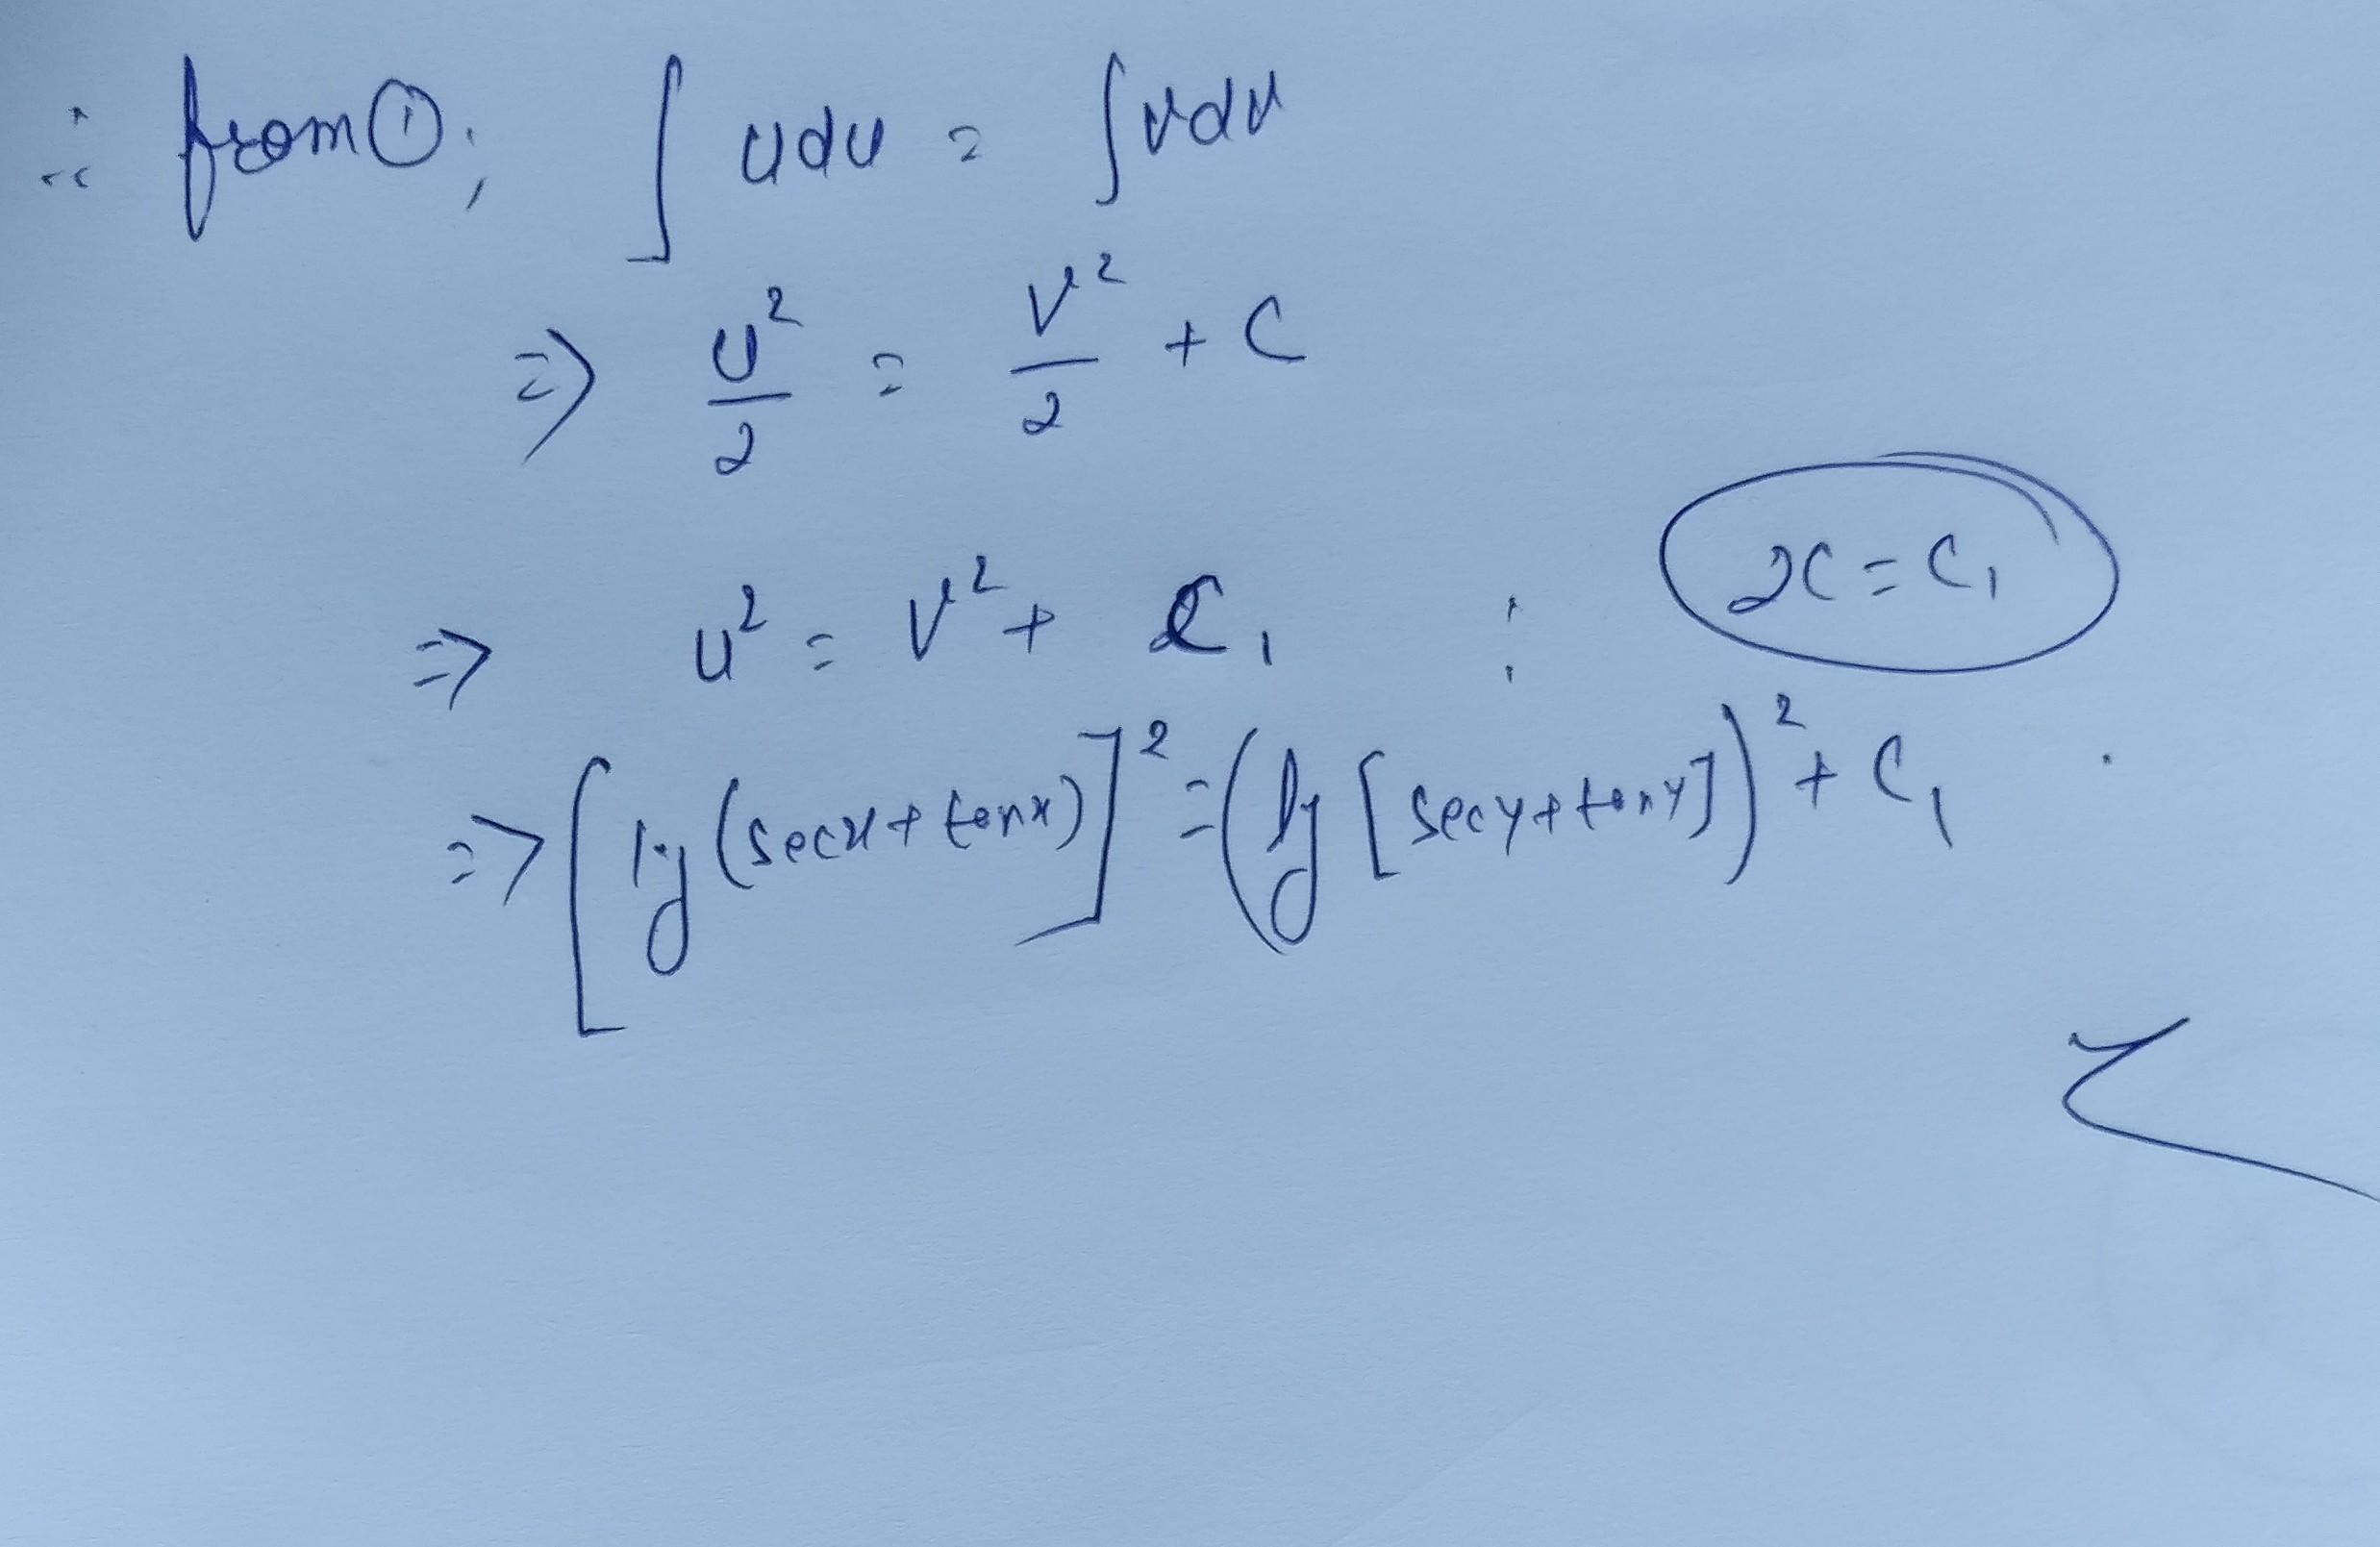 ∴ from ①; ∫ u du = ∫ v dv
⇒ u²/2 = v²/2 + C
⇒ u² = v² + C₁ ; 2C = C₁
⇒ [log (secx + tanx)]² = (log [secy + tany])² + C₁ .